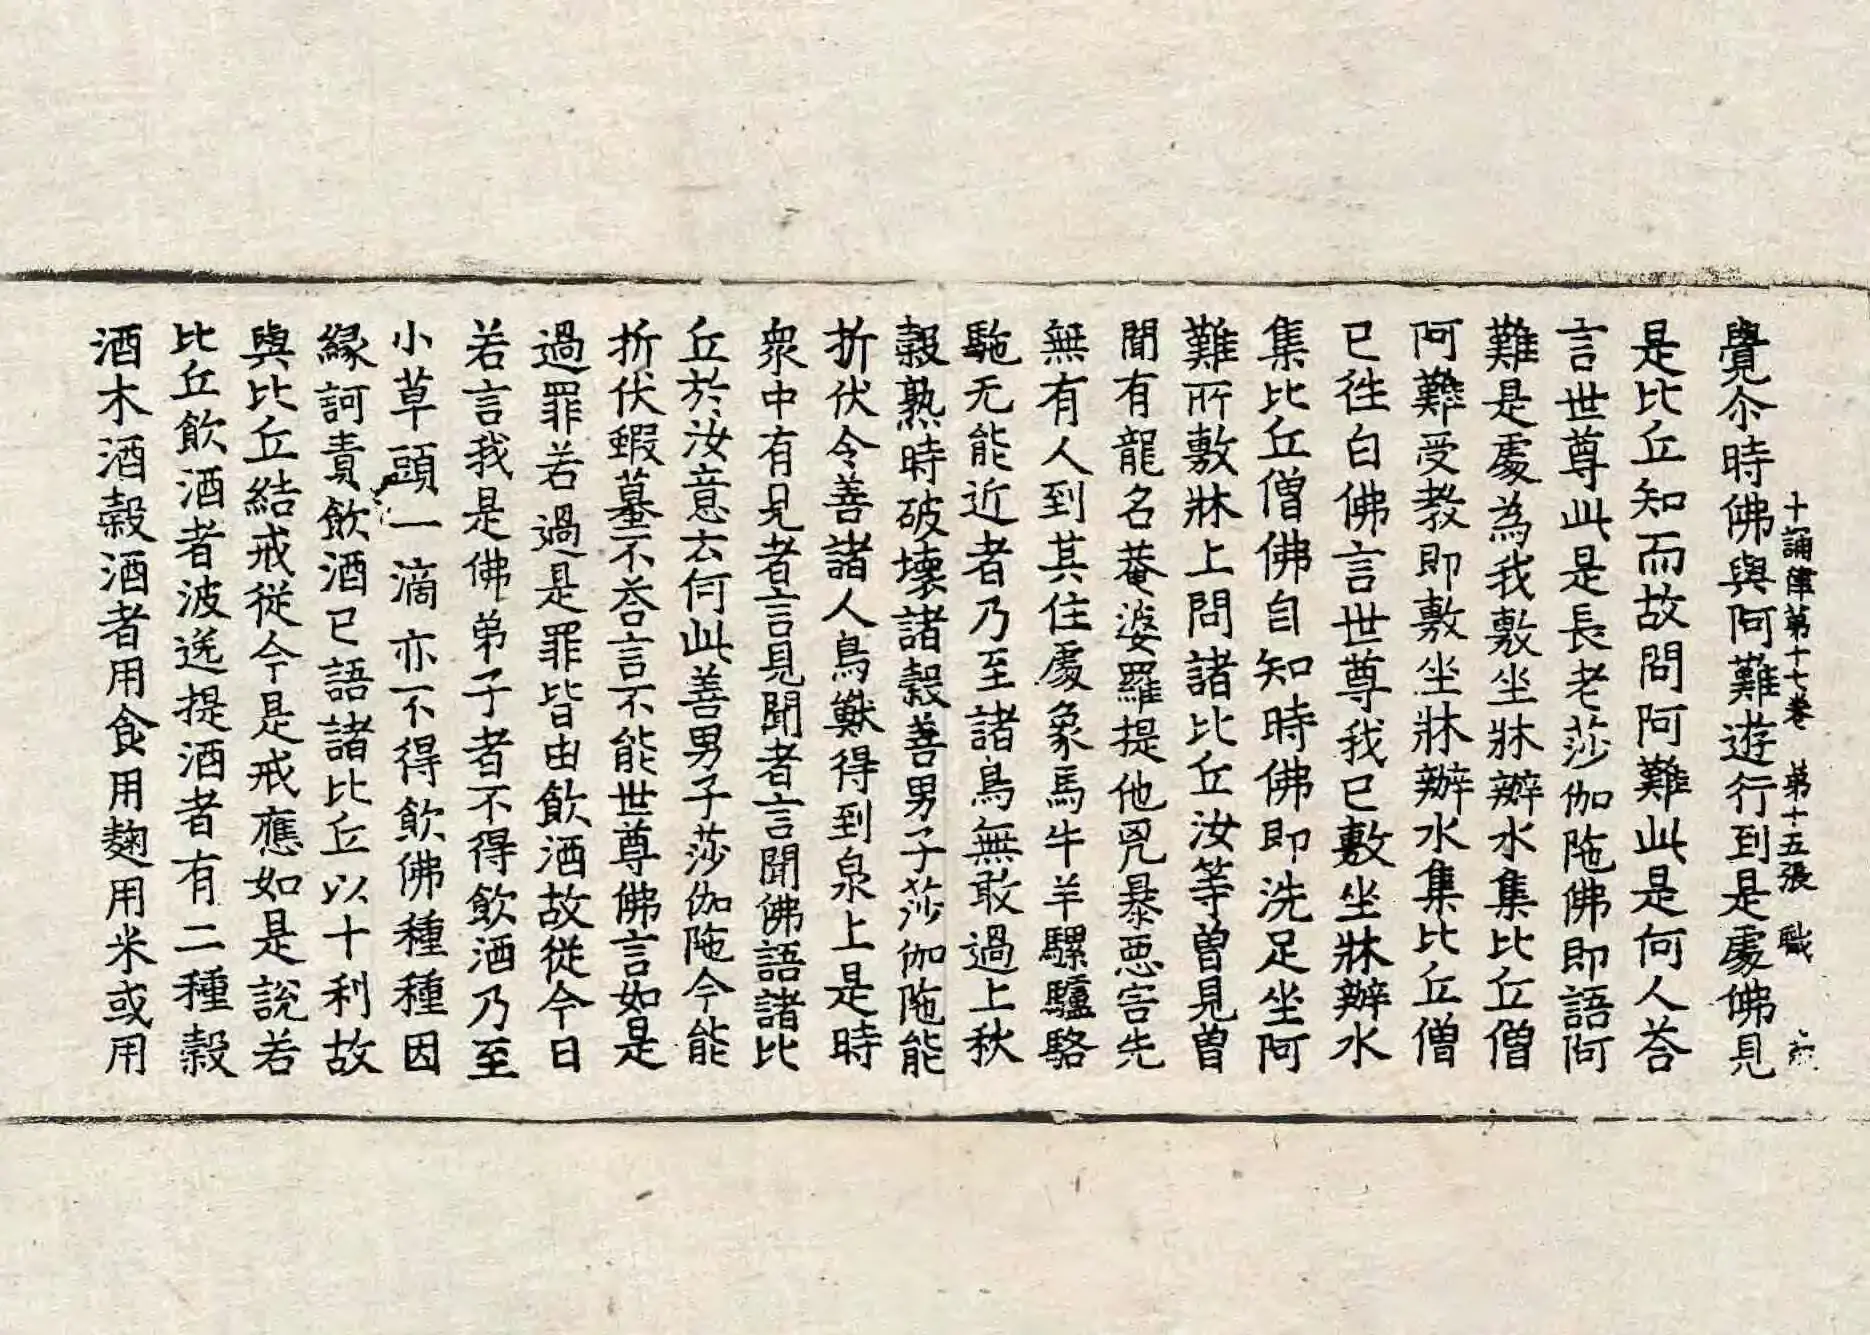 十誦律第十七卷 第十五張 職
覺尒時佛與阿難遊行到是處佛見
是比丘知而故問阿難此是何人荅
言世尊此是長老莎伽陁佛即語阿
難是處為我敷坐牀辦水集比丘僧
阿難受教即敷坐牀辦水集比丘僧
已徃白佛言世尊我已敷坐牀辦水
集比丘僧佛自知時佛即洗足坐阿
難所敷牀上問諸比丘汝等曽見曽
聞有龍名菴婆羅提他兇暴惡害先
無有人到其住處象馬牛羊騾驢駱
駞无能近者乃至諸鳥無敢過上秋
穀熟時破壞諸穀善男子莎伽陁能
折伏令善諸人鳥獸得到泉上是時
衆中有見者言見聞者言聞佛語諸比
丘於汝意云何此善男子莎伽陁今能
折伏蝦蟇不荅言不能世尊佛言如是
過罪若過是罪皆由飲酒故從今日
若言我是佛弟子者不得飲酒乃至
小草頭一滴亦不得飲佛種種因
緣訶責飲酒已語諸比丘以十利故
與比丘結戒從今是戒應如是說若
比丘飲酒者波逸提酒者有二種穀
酒木酒穀酒者用食用麴用米或用